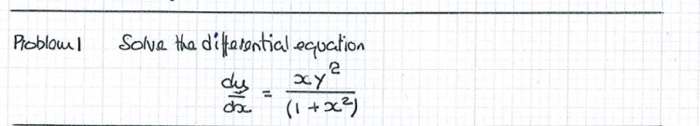 Problem 1 Solve the differential equation
dy/dx = xy²/(1 + x²)